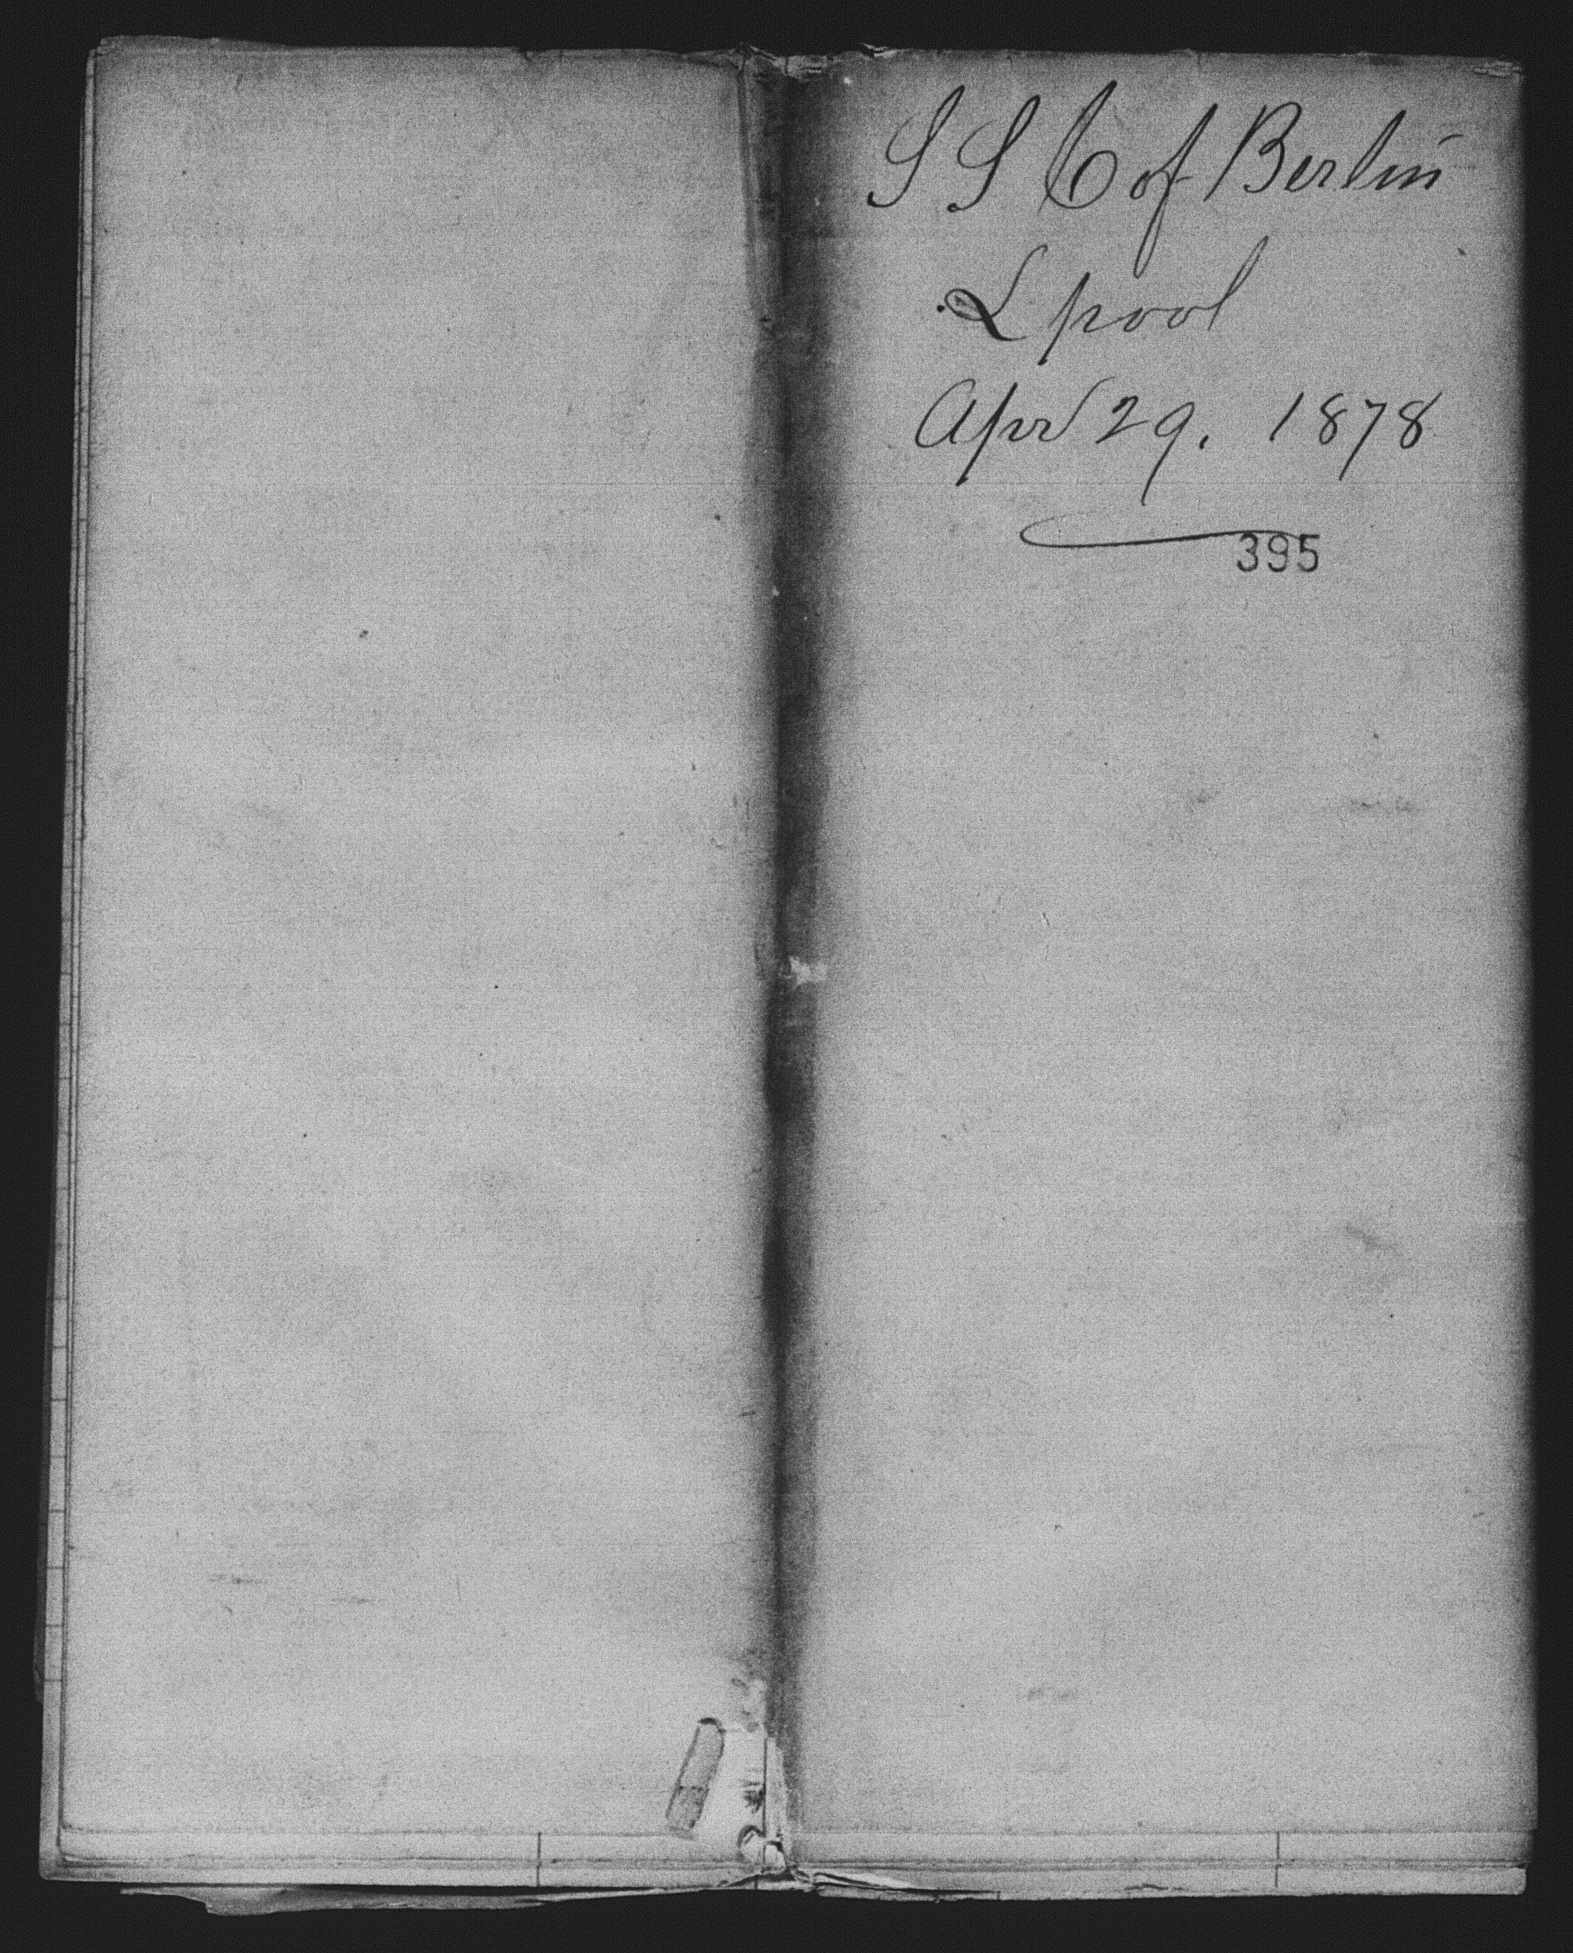 S S C of Berlin
Lpool
Apr 29. 1878
395